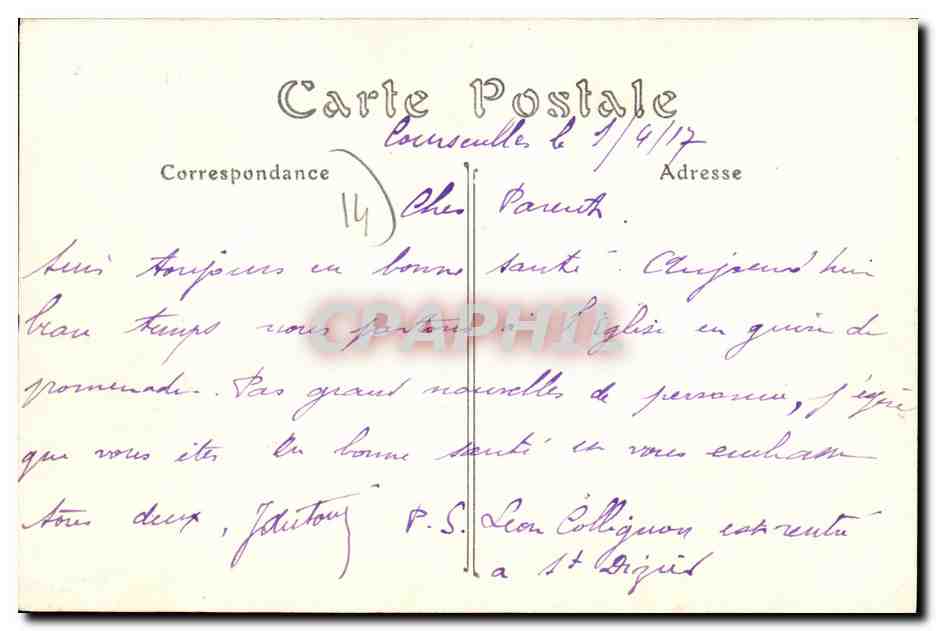 Carte Postale
Courseulles le 1/4/17
Correspondance
Adresse
14
Chers Parents.
Suis toujours en bonne santé. Aujourd'hui
beau temps nous partons à l'Eglise en guise de
promenade. Pas grand nouvelles de personne, j'éspère
que vous êtes en bonne santé en vous embrassan
tous deux,
P.S. Léon Collignon est rentré
a St Dizier
CPAPHIL